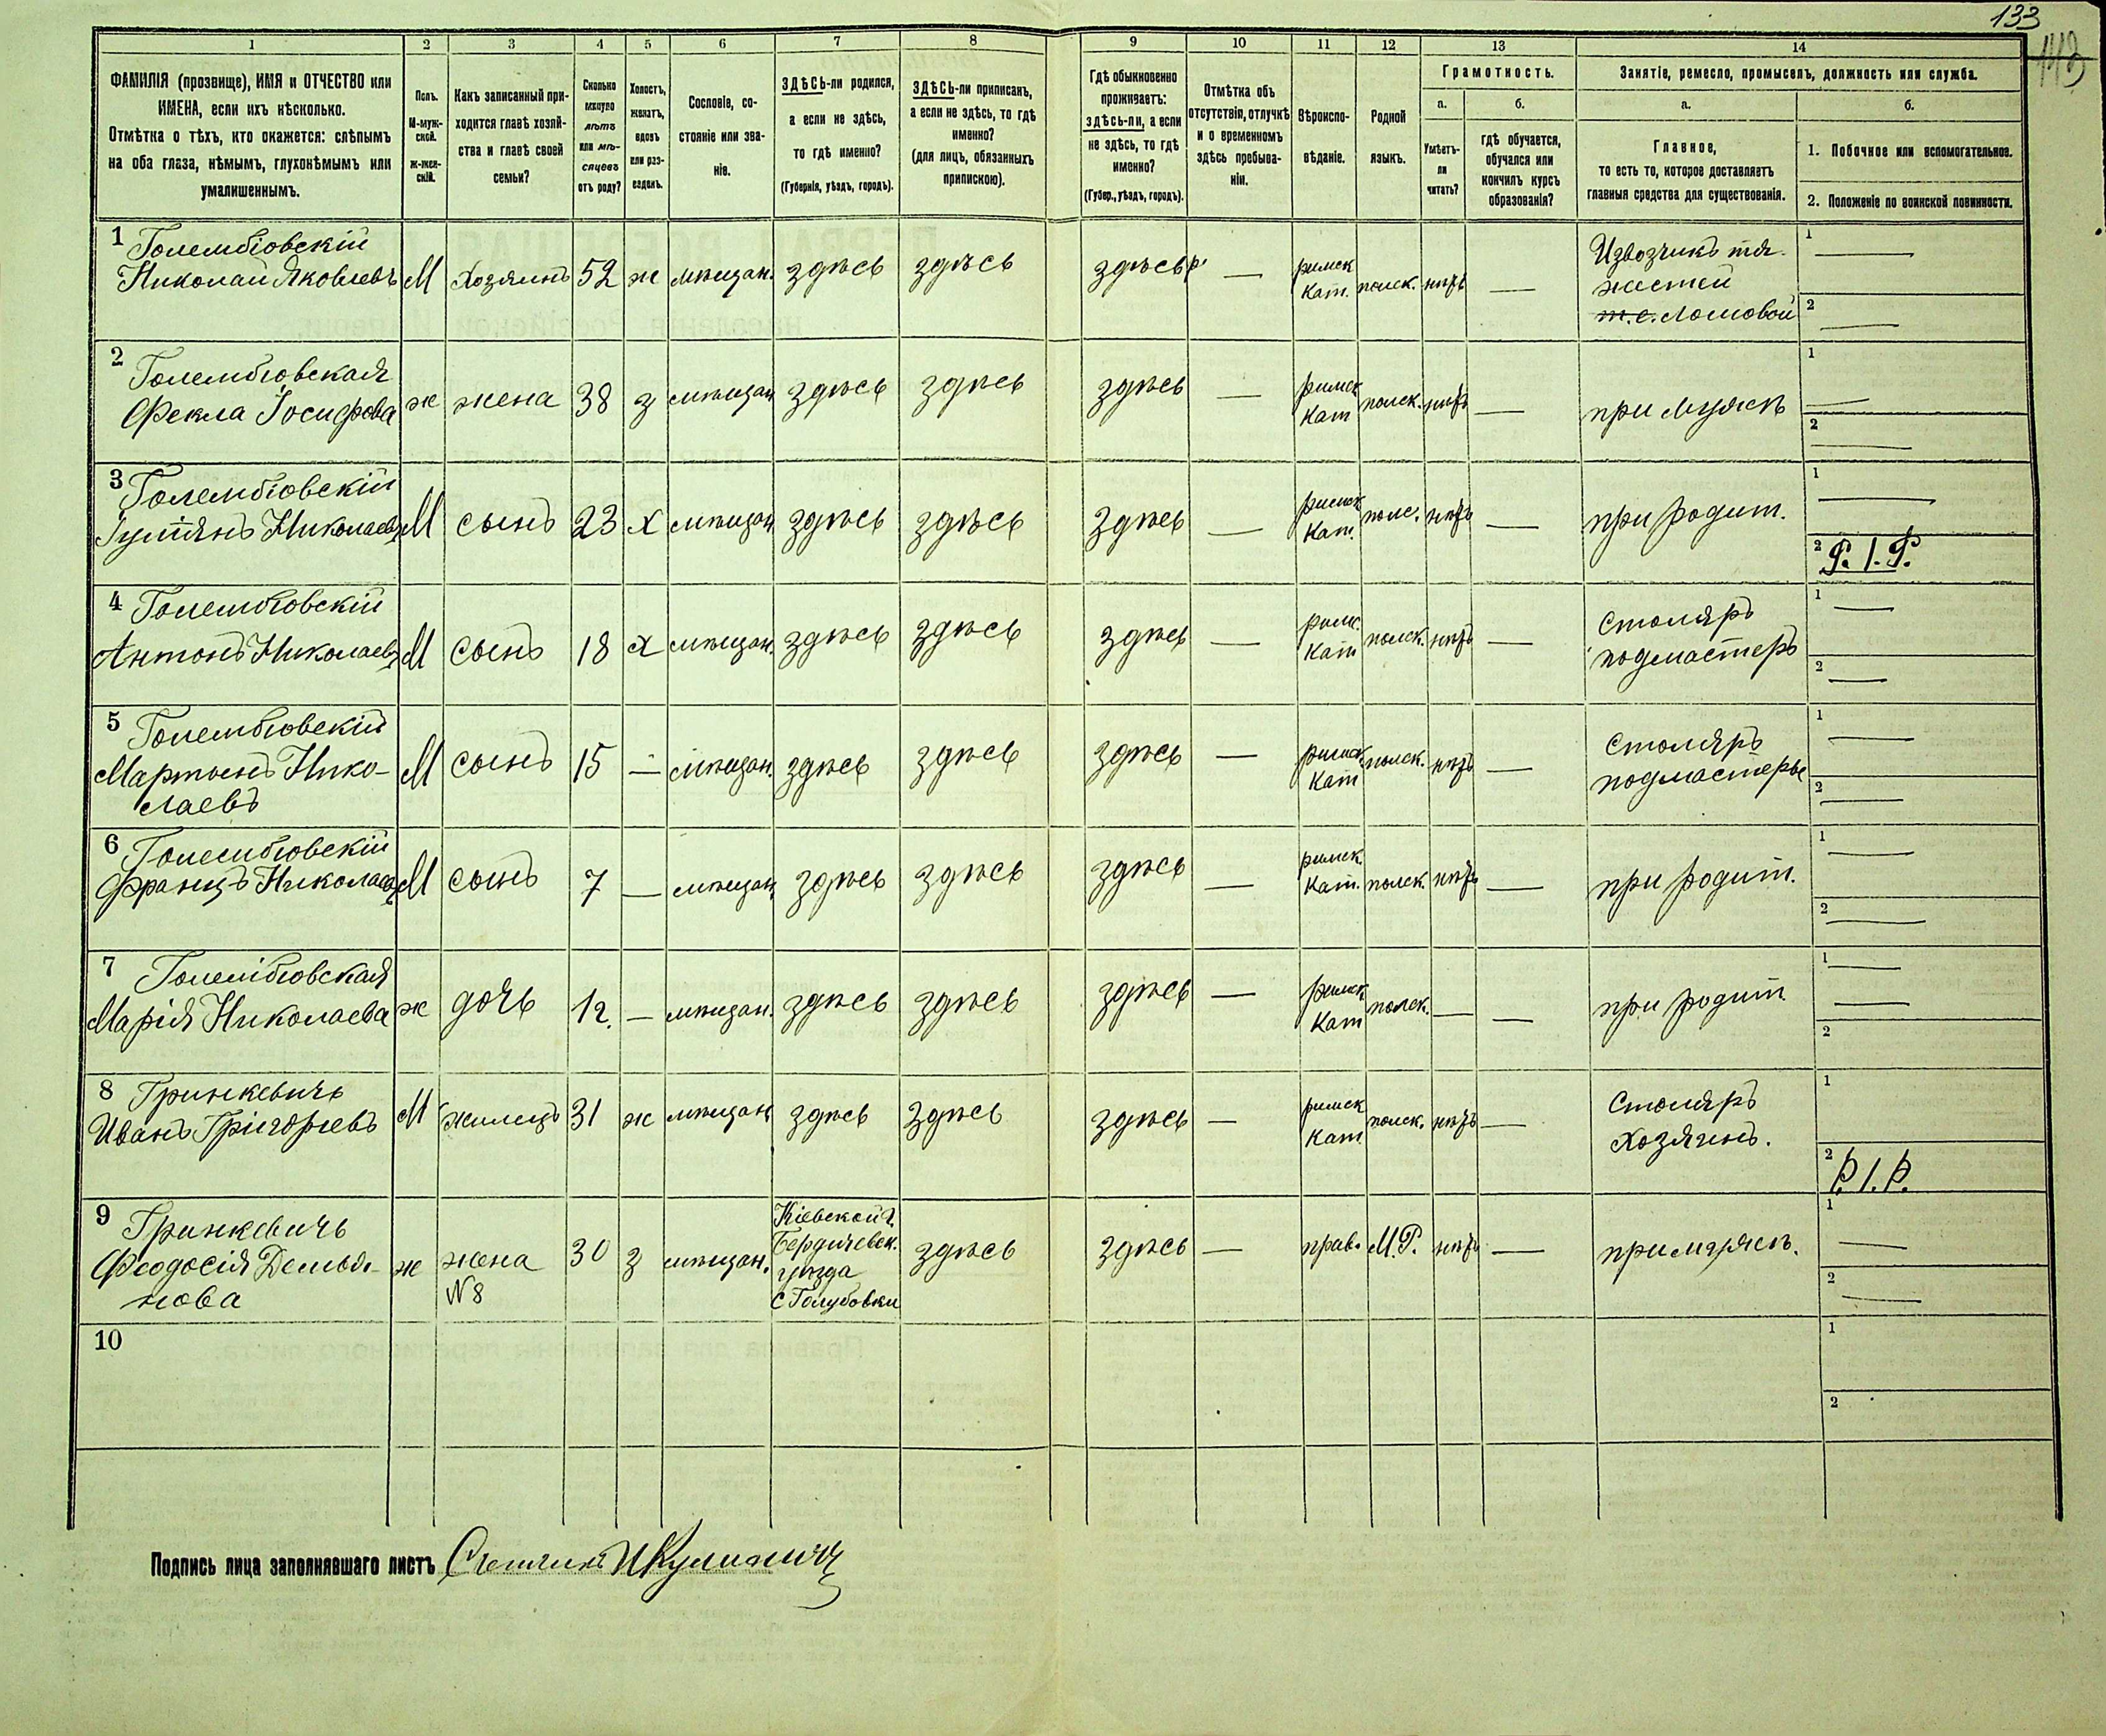 133
143
1 2 3 4 5 6 7 8 9 10 11 12 13 14
ФАМИЛІЯ (прозвище), ИМЯ и ОТЧЕСТВО или
ИМЕНА, если ихъ нѣсколько.
Отмѣтка о тѣхъ, кто окажется: слѣпымъ
на оба глаза, нѣмымъ, глухонѣмымъ или
умалишеннымъ.
Полъ.
М-муж-
ской.
Ж-жен-
скій.
Какъ записанный при-
ходится главѣ хозяй-
ства и главѣ своей
семьи?
Сколько
минуло
лѣтъ
или мѣ-
сяцевъ
отъ роду?
Холостъ,
женатъ,
вдовъ
или раз-
веденъ.
Сословіе, со-
стояніе или зва-
ніе.
ЗДѢСЬ-ли родился,
а если не здѣсь,
то гдѣ именно?
(Губернія, уѣздъ, городъ).
ЗДѢСЬ-ли приписанъ,
а если не здѣсь, то гдѣ
именно?
(для лицъ, обязанныхъ
припискою).
Гдѣ обыкновенно
проживаетъ:
здѣсь-ли, а если
не здѣсь, то гдѣ
именно?
(Губер., уѣздъ, городъ).
Отмѣтка объ
отсутствіи, отлучкѣ
и о временномъ
здѣсь пребыва-
ніи.
Вѣроиспо-
вѣданіе.
Родной
языкъ.
Грамотность.
а.
Умѣетъ-
ли
читать?
б.
гдѣ обучается,
обучался или
кончилъ курсъ
образованія?
Занятіе, ремесло, промыселъ, должность или служба.
а.
Главное,
то есть то, которое доставляетъ
главныя средства для существованія.
б.
1. Побочное или вспомогательное.
2. Положеніе по воинской повинности.
1 Голембіовскій
Николай Яковлевъ М Хозяинъ 52 ж мѣщан. здѣсь здѣсь здѣсь — римск
кат. польск. нѣтъ — Извозчикъ тя-
жестей
т.е. Ломовой
1 —
2 —
2 Голембіовская
Фекла Іосифова ж жена 38 з мѣщан здѣсь здѣсь здѣсь — римск
кат польск. нѣтъ — при мужѣ
1 —
2 —
3 Голембіовскій
Николаевъ М сынъ 23 х мѣщан здѣсь здѣсь здѣсь — римск
кат. полс. нѣтъ — при родит.
1 —
2 Р. I. Р.
4 Голембіовскій
Антонъ Николаевъ М сынъ 18 х мѣщан. здѣсь здѣсь здѣсь — римс
кат польск. нѣтъ — Столяръ
подмастеръ
1 —
2 —
5 Голембіовскій
Мартынъ Нико-
лаевъ М сынъ 15 — мѣщан. здѣсь здѣсь здѣсь — римск
кат польск. нѣтъ — Столяръ
подмастерье
1 —
2 —
6 Голембіовскій
Францъ Николаевъ М сынъ 7 — мѣщан. здѣсь здѣсь здѣсь — римск.
кат. польск. нѣтъ — при родит.
1 —
2 —
7 Голембіовская
Марія Николаева ж дочь 12. — мѣщан. здѣсь здѣсь здѣсь — римск
кат польск. — — при родит
1 —
—
2
8 Гринкевичъ
Иванъ Григорьевъ М жилецъ 31 ж мѣщан здѣсь здѣсь здѣсь — римск
кат польск. нѣтъ — Столяръ
хозяинъ.
1
2 Р. I. Р.
9 Гринкевичъ
Феодосія Демья-
нова ж жена
№ 8 30 з мѣщан. Кіевской г.
Бердичевск.
уѣзда
с Голубовки здѣсь здѣсь — прав. М. Р. нѣтъ — при мужѣ.
1 —
2 —
10
1
2
Подпись лица заполнявшаго листъ Счетчикъ